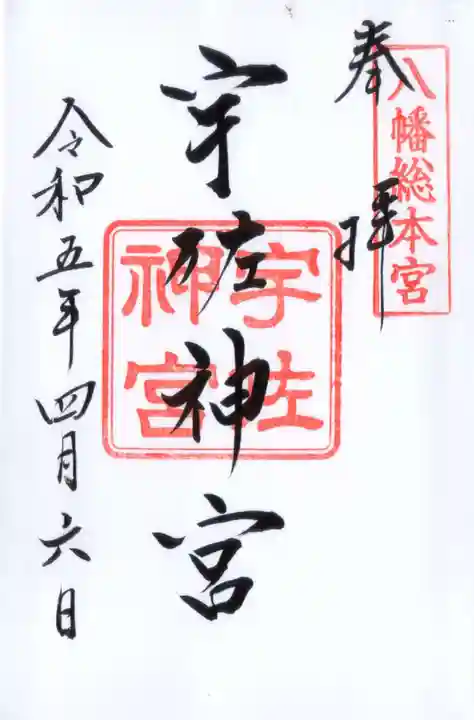 八幡総本宮
奉拝
宇佐神宮
宇佐
神宮
令和五年四月六日